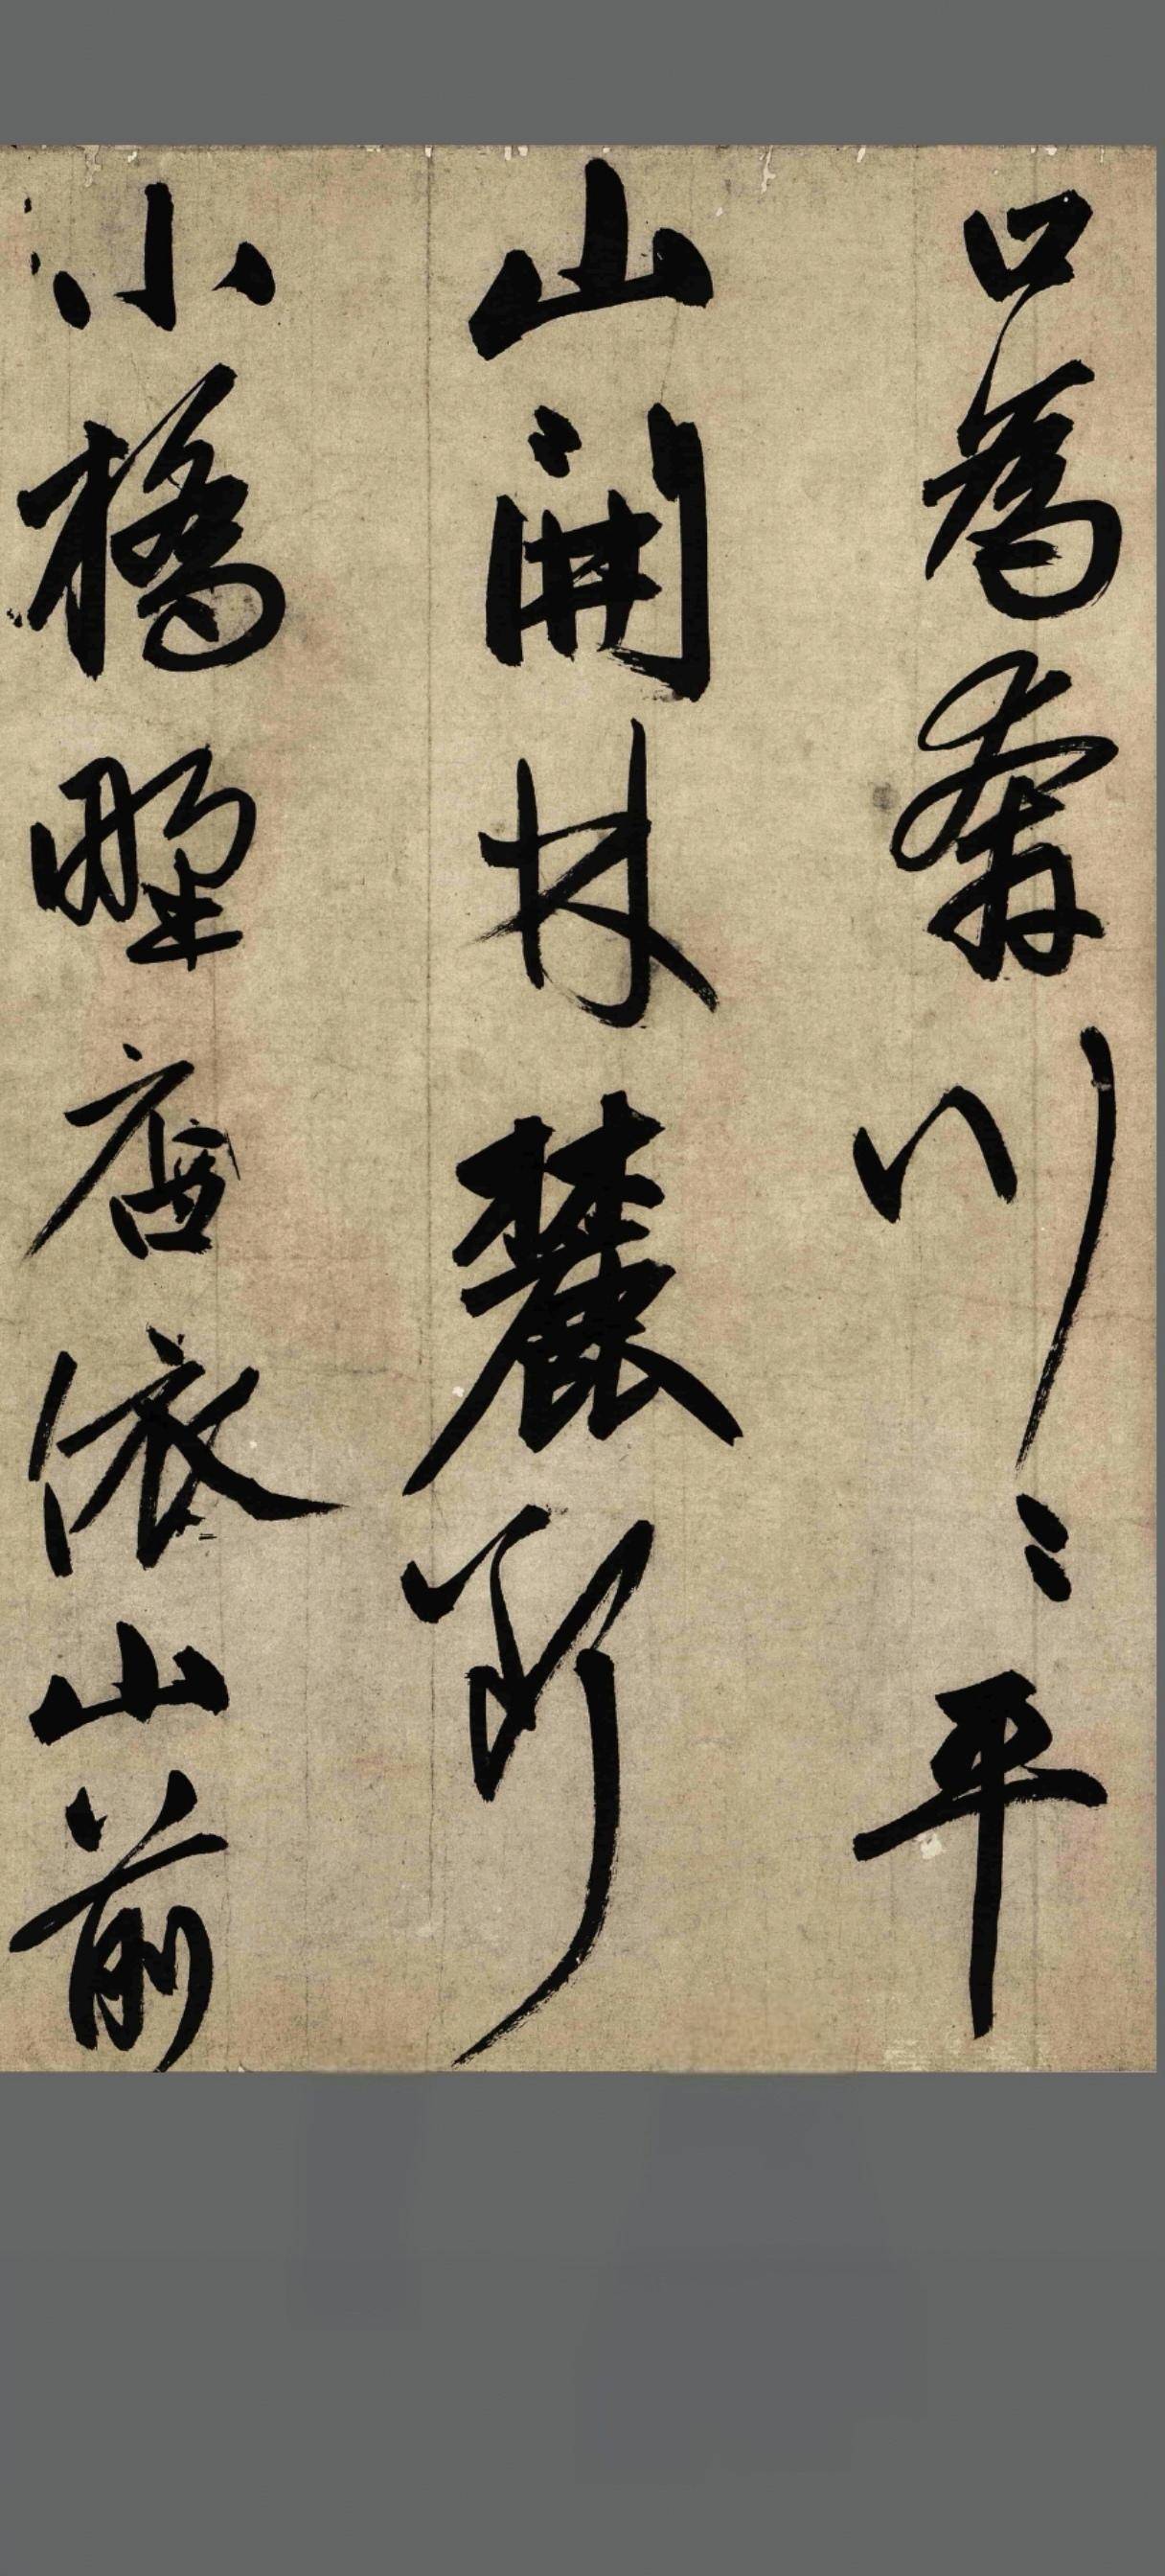 口為奔川〻平
山開林麓斷
小橋野店依山前